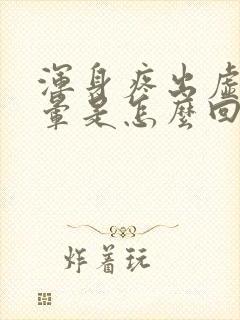 渾身疼出虛
暈是怎麼回
炸着玩